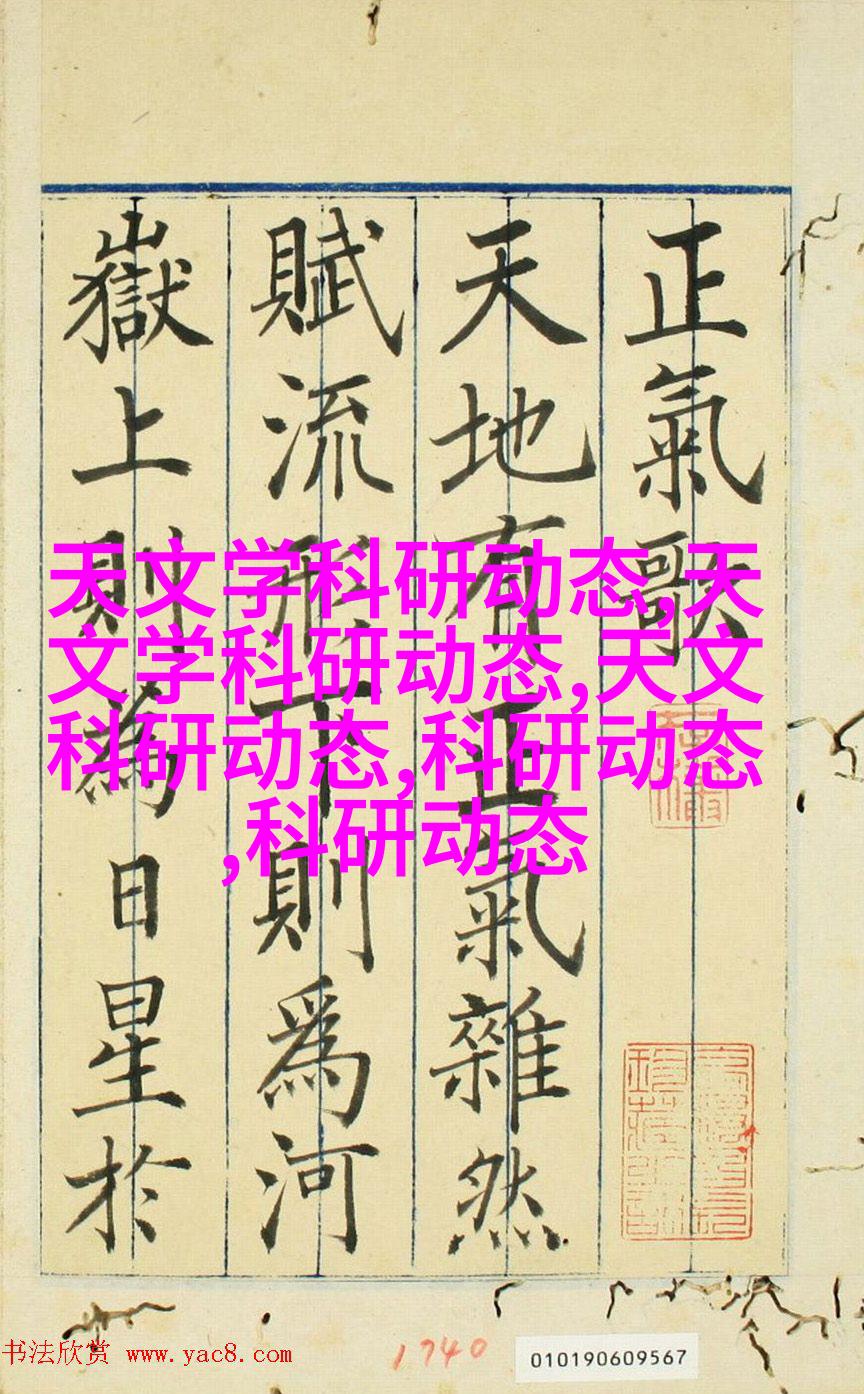 正氣歌
天地有正氣雜然
賦流形下則爲河
嶽上則為日星於
天文学科研动态,天
文学科研动态,天文
科研动态,科研动态
,科研动态
书法欣赏 www.yac8.com
1740
010190609567